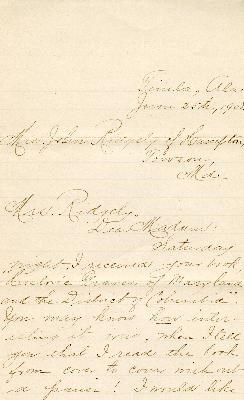 Ala.
June 25th, 190
Mrs. John Ridgely of Hampton,
Towson,
Md.
Mrs. Ridgely,
Dear Madam:
Saturday
night I received your book
Graves of Maryland
and the District of Columbia".
You may know how inter-
esting it was, when I tell
you that I read the book
from cover to cover without
a pause! I would like